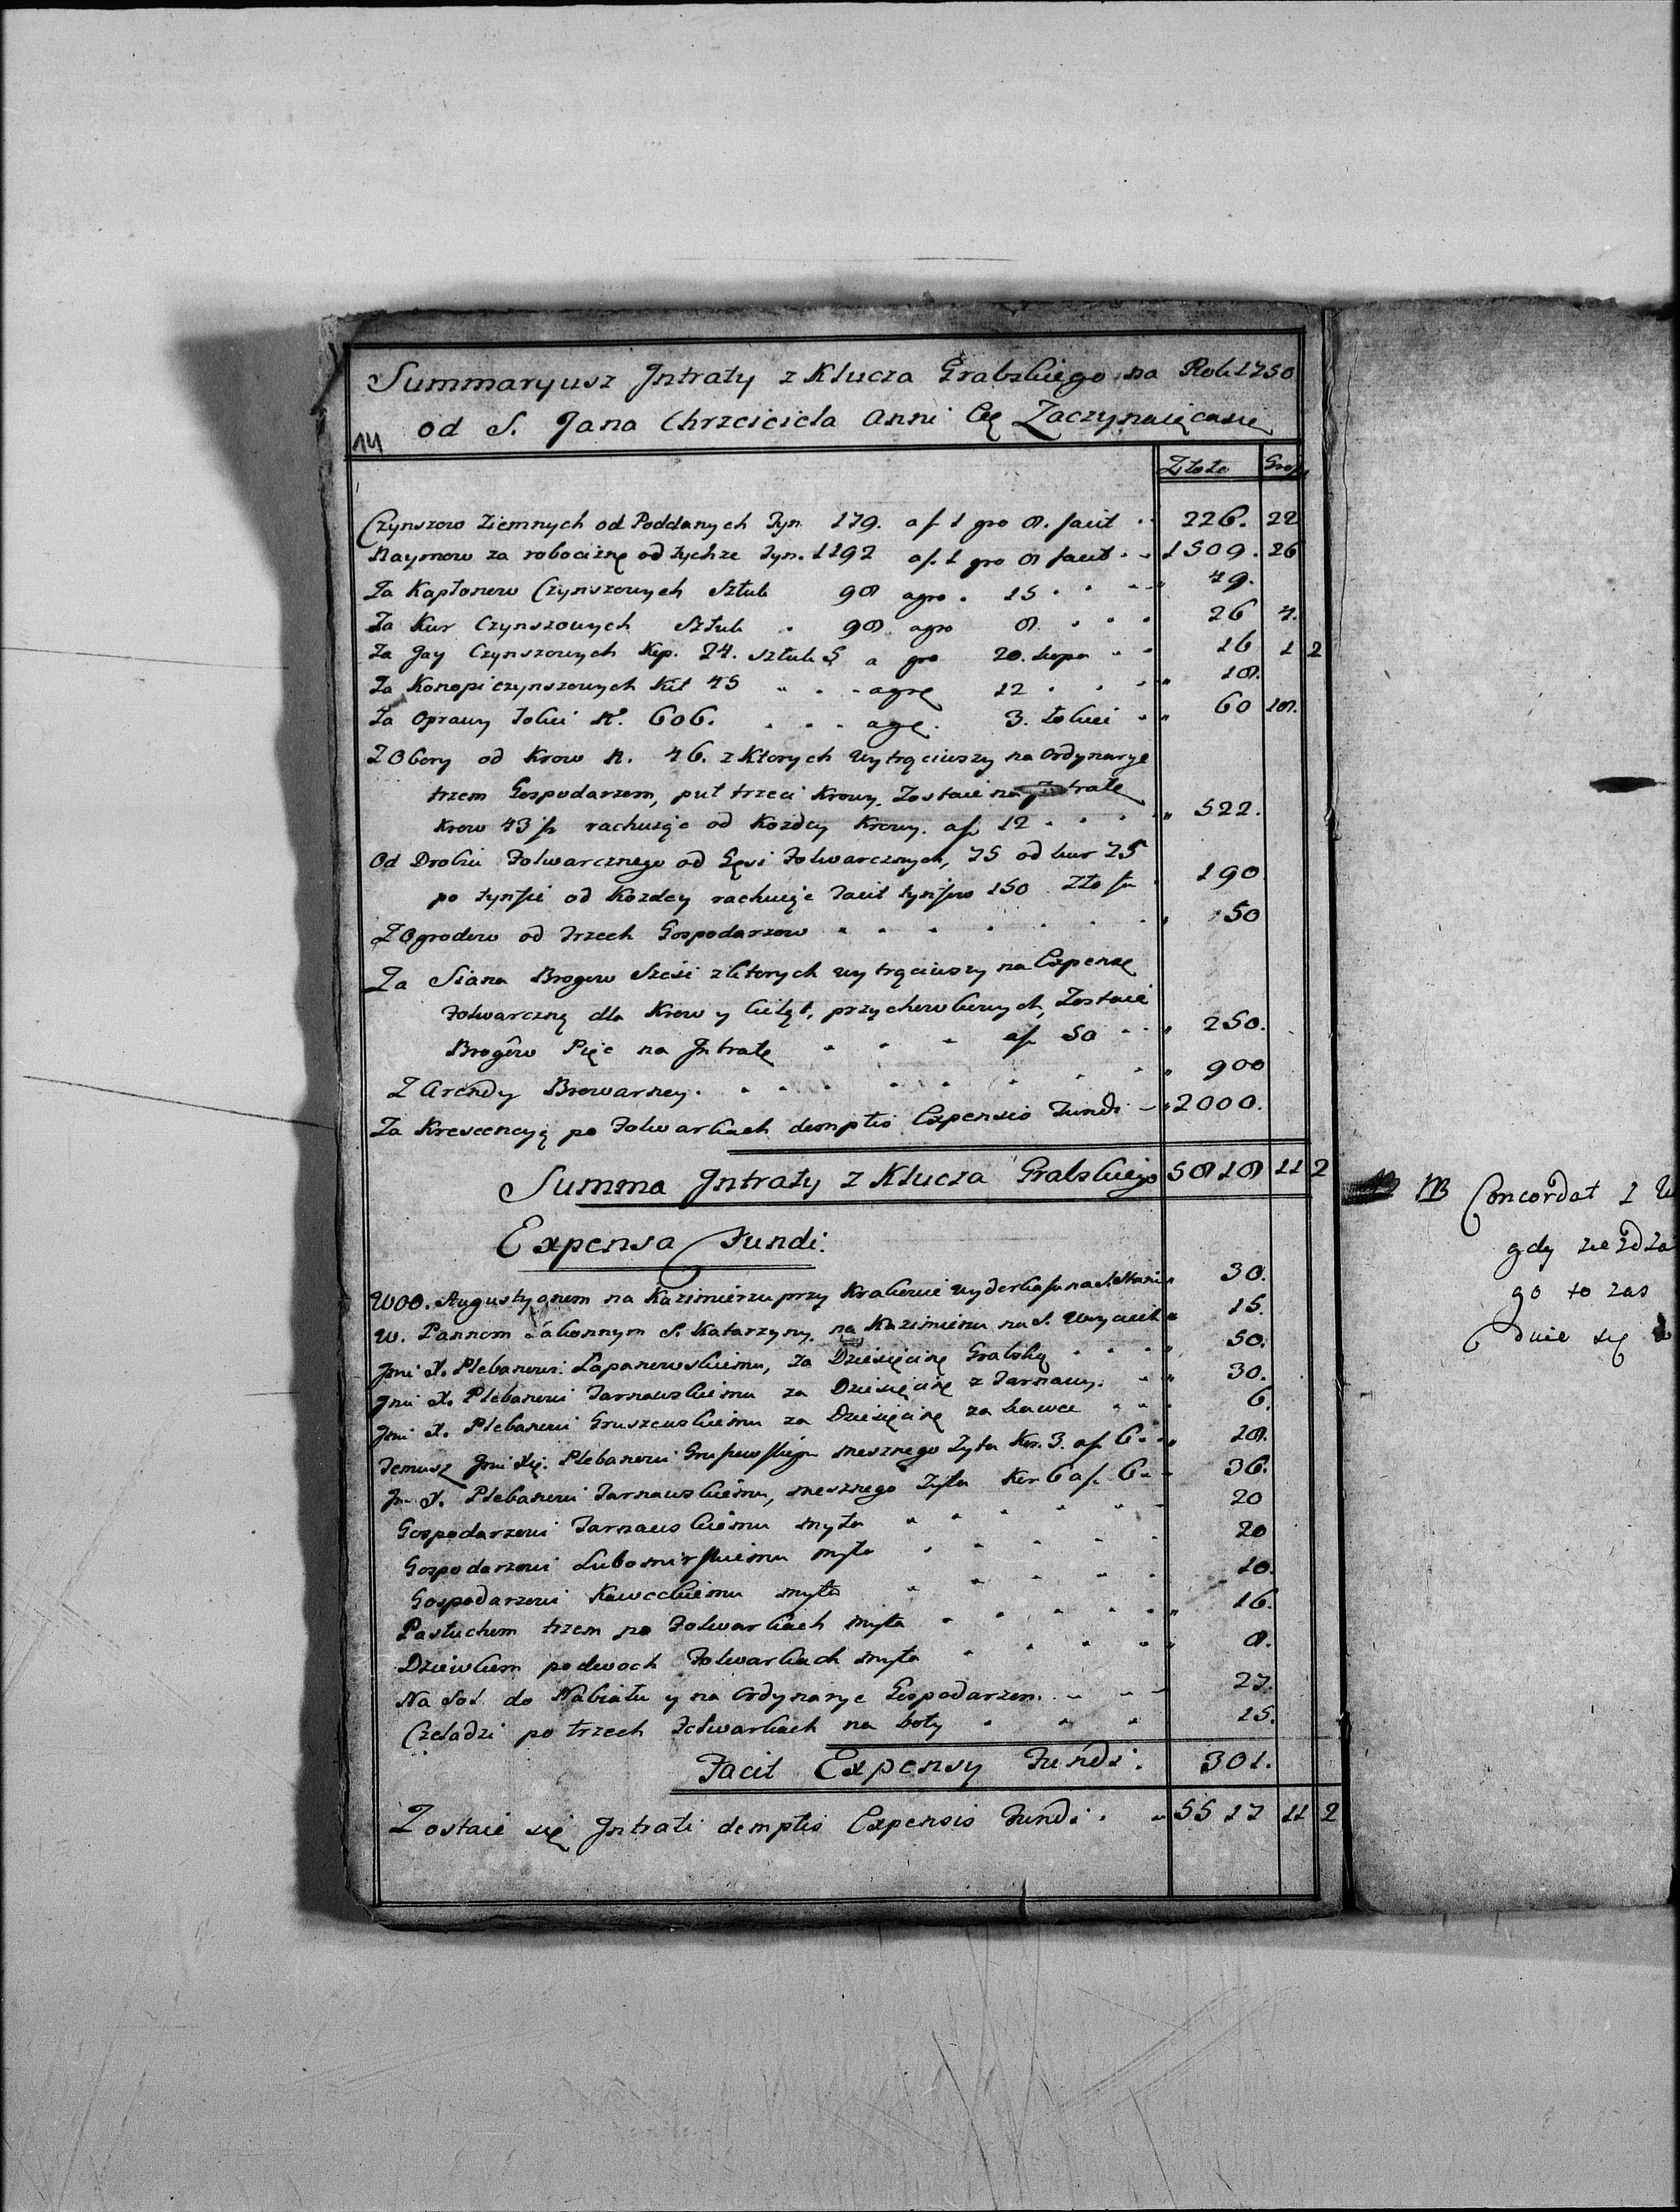 Summaryusz Jntraty z Klucza Grabskiego na Rok 1750
od S. Jana Chrzciciela Anni Zaczynaięcasię
14
Złote Grosz
Czynszow Ziemnych od Poddanych Tyn 179. af 1 gro 8. facit 226. 22
Naymow za robociznę od tychze Tyn. 1192 af. 1 gro 8 facit 1509. 26
Za Kapłonow Czynszowych Sztuk 98 agro. 15 49.
Za Kur Czynszowych Sztuk 98. agro 8. 26 4.
Za Jay Czynszowych Kop. 24. sztuk 5 a gro 20. kopa 16 1 2
Za Konopi czynszowych Kit 45 agrę 12 18.
Za Oprawy Tokci N. 606. agę. 3. łokci 60 18.
Z Obory od Krow N. 46. z Ktorych wytrąciwszy na Ordynarye
trzem Gospodarzom, puł trzeci Krowy. Zostaie na Jntratę
Krow 43 ½ rachuięc od Kozdey Krowy. af 12 522.
Od Drobiu Folwarcznego od Gęsi Folwarcznych, 75 od kur 75
po tynfie od Kozdey rachuięc facit tynfow 150 Zło 190
Z Ogrodow od Trzech Gospodarzow 50
Za Siana Brogow Sześć z ktorych wytrąciwszy na Expensę
Folwarczną dla Krow y Cieląt, przychowkowych, Zostaie
Brogow Pięć na Jntratę af 50 250.
Z Arendy Browarney. 900
Za Krescencyą po Folwarkach demptis Expensis Fundi 2000.
Summa Jntraty z Klucza Grabskiego 5818 11 2
Expensa Fundi.
WOO. Augustyanom na Kazimierzu przy Krakowie wyderkafu na S. 30.
W. Pannom Zakonnym S. Katarzyny. na Kazimierzu na S. Woyciech 15.
Jmi X. Plebanowi Łapanowskiemu, za Dziesięcinę Grabską 50.
Jmi X. Plebanowi Tarnawskiemu za Dziesięcinę z Tarnawy. 30.
Jmi X. Plebanowi Gruszewskiemu za Dziesięcinę za kawce 6.
Temusz Jmi Xię. Plebanowi mesznego Zyta Kor. 3. af. 6. 18.
Jm X. Plebanowi Tarnawskiemu, mesznego Zyta Kor 6 af. 6. 36.
Gospodarzowi Tarnawskiemu myta 20
Gospodarzowi Lubomirskiemu myta 20
Gospodarzowi Kaweckiemu myta 10.
Pastuchom trzem po Folwarkach myta 16.
Dziewkom podwoch Folwarkach myta 8.
Na Sol do Nabiału y na Ordynarye Gospodarzom. 27.
Czeladzi po trzech Folwarkach na boty 15.
Facit Expensy Fundi. 301.
Zostaie się Jntrati demptis Expensis Fundi. 5517 11 2
NB Concordat z
gdy
go to zas
się